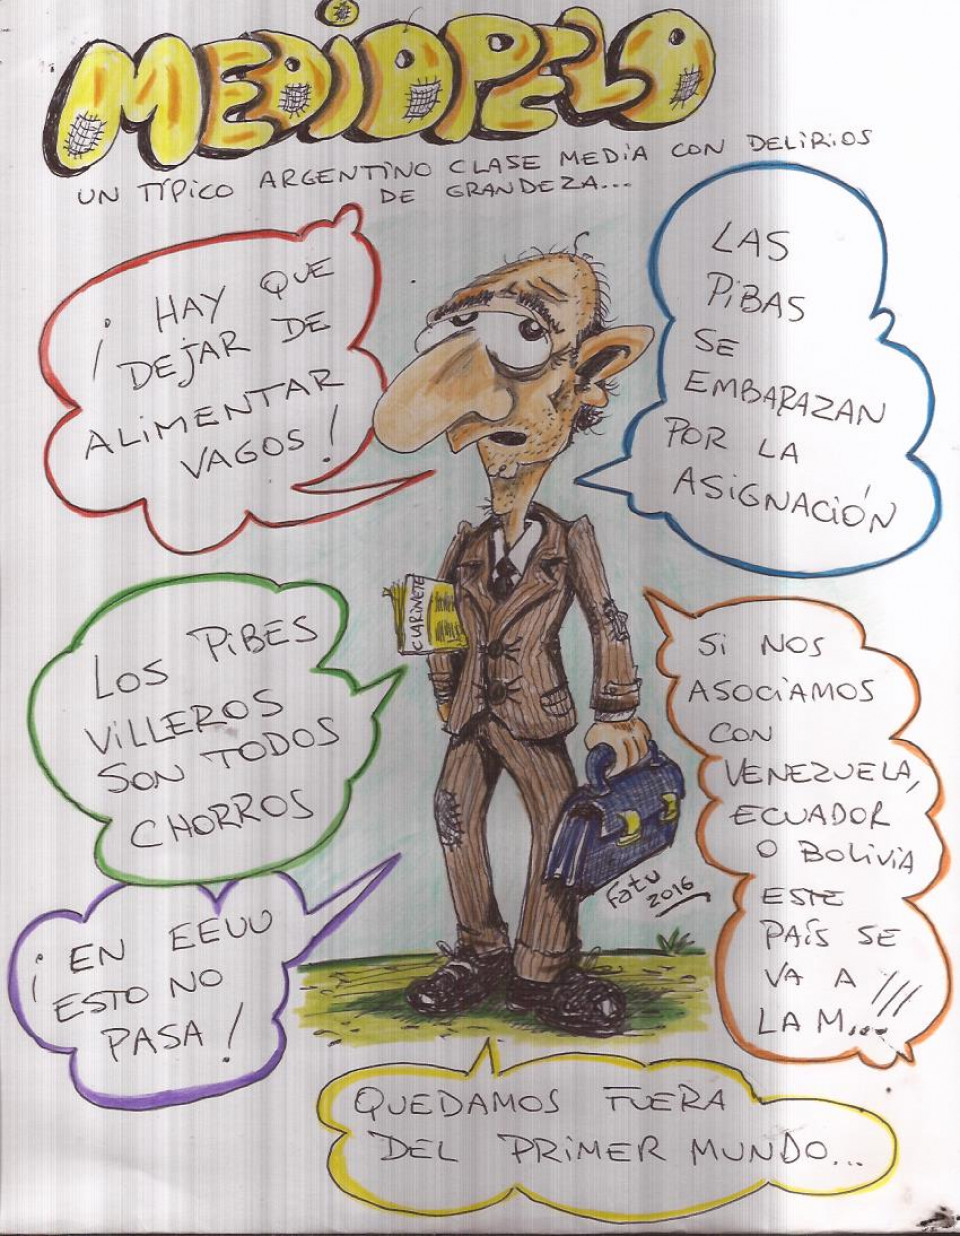 MEDIOPELO
UN TÍPICO ARGENTINO CLASE MEDIA CON DELIRIOS
DE GRANDEZA...
¡HAY QUE
DEJAR DE
ALIMENTAR
VAGOS!
LAS
PIBAS
SE
EMBARAZAN
POR LA
ASIGNACIÓN
CLARINETE
LOS PIBES
VILLEROS
SON TODOS
CHORROS
SI NOS
ASOCIAMOS
CON
VENEZUELA,
ECUADOR
O BOLIVIA
ESTE
PAÍS SE
VA A
LA M...
¡EN EEUU
ESTO NO
PASA!
Fatu
2016
QUEDAMOS FUERA
DEL PRIMER MUNDO...